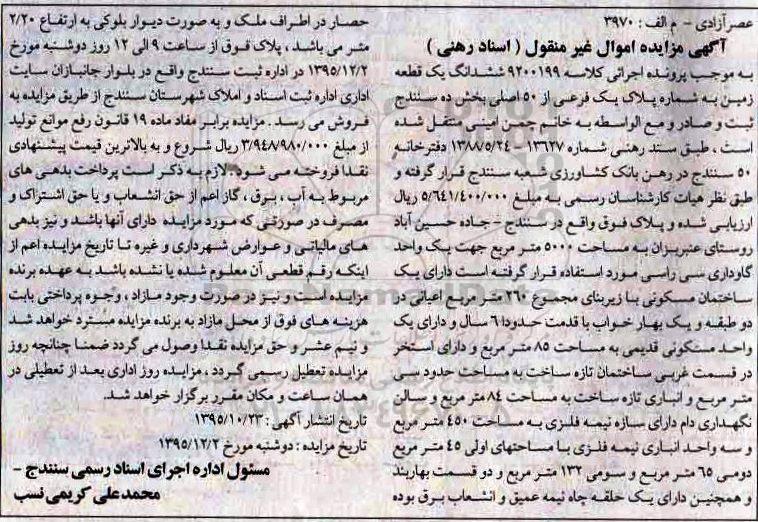 عصر آزادی - م الف: ۳۹۷۰
آگهی مزایده اموال غیر منقول ( اسناد رهنی )
به موجب پرونده اجرائی کلاسه ۹۲۰۰۱۹۹ ششدانگ یک قطعه
زمین به شماره پلاک یک فرعی از ۵۰ اصلی بخش ده سنندج
ثبت و صادر و مع الواسطه به خانم چمن امینی منتقل شده
است ، طبق سند رهنی شماره ۱۳۶۲۷ - ۱۳۸۸/۵/۲۴ دفترخانه
۵۰ سنندج در رهن بانک کشاورزی شعبه سنندج قرار گرفته و
طبق نظر هیات کارشناسان رسمی به مبلغ ۵/۶۴۱/۴۰۰/۰۰۰ ریال
ارزیابی شده و پلاک فوق واقع در سنندج - جاده حسین آباد
روستای عنبربزان به مساحت ۵۰۰۰ متر مربع جهت یک واحد
گاوداری سی راسی مورد استفاده قرار گرفته است دارای یک
ساختمان مسکونی با زیربنای مجموع ۲۶۰ متر مربع اعیانی در
دو طبقه و یک بهار خواب با قدمت حدودا ۶ سال و دارای یک
واحد مسکونی قدیمی به مساحت ۸۵ متر مربع و دارای استخر
در قسمت غربی ساختمان تازه ساخت به مساحت حدود سی
متر مربع و انباری تازه ساخت به مساحت ۸۴ متر مربع و سالن
نگهداری دام دارای سازه نیمه فلزی به مساحت ۴۵۰ متر مربع
و سه واحد انباری نیمه فلزی با مساحتهای اولی ۴۵ متر مربع
دومی ۶۵ متر مربع و سومی ۱۳۲ متر مربع و دو قسمت بهاربند
و همچنین دارای یک حلقه چاه نیمه عمیق و انشعاب برق بوده
حصار در اطراف ملک و به صورت دیوار بلوکی به ارتفاع ۲/۲۰
متر می باشد ، پلاک فوق از ساعت ۹ الی ۱۲ روز دوشنبه مورخ
۱۳۹۵/۱۲/۲ در اداره ثبت سنندج واقع در بلوار جانبازان سایت
اداری اداره ثبت اسناد و املاک شهرستان سنندج از طریق مزایده به
فروش می رسد . مزایده برابر مفاد ماده ۱۹ قانون رفع موانع تولید
از مبلغ ۳/۹۴۸/۹۸۰/۰۰۰ ریال شروع و به بالاترین قیمت پیشنهادی
نقدا فروخته می شود. لازم به ذکر است پرداخت بدهی های
مربوط به آب ، برق ، گاز اعم از حق انشعاب و یا حق اشتراک و
مصرف در صورتی که مورد مزایده دارای آنها باشد و نیز بدهی
های مالیاتی و عوارض شهرداری و غیره تا تاریخ مزایده اعم از
اینکه رقم قطعی آن معلوم شده یا نشده باشد به عهده برنده
مزایده است و نیز در صورت وجود مازاد ، وجوه پرداختی بابت
هزینه های فوق از محل مازاد به برنده مزایده مسترد خواهد شد
و نیم عشر و حق مزایده نقدا وصول می گردد ضمنا چنانچه روز
مزایده تعطیل رسمی گردد ، مزایده روز اداری بعد از تعطیلی در
همان ساعت و مکان مقرر برگزار خواهد شد.
تاریخ انتشار آگهی : ۱۳۹۵/۱۰/۲۳
تاریخ مزایده : دوشنبه مورخ ۱۳۹۵/۱۲/۲
مسئول اداره اجرای اسناد رسمی سنندج -
محمدعلی کریمی نسب